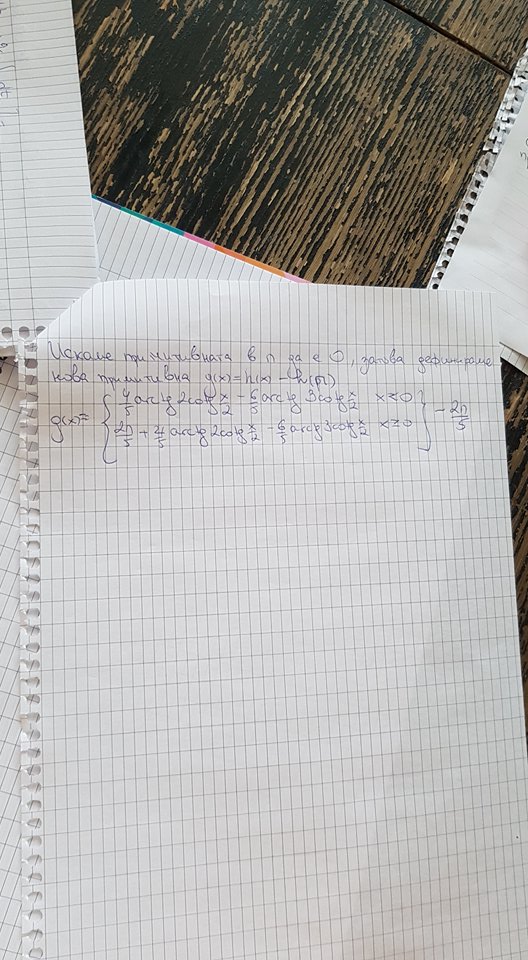 Искаме примитивната в π да е 0, затова дефинираме
нова примитивна g(x) = h(x) - h(π)
g(x) = { 4/5 arctg 2cotg x/2 - 6/5 arctg 3cotg x/2 x<0
2π/5 + 4/5 arctg 2cotg x/2 - 6/5 arctg 3cotg x/2 x≥0 } - 2π/5